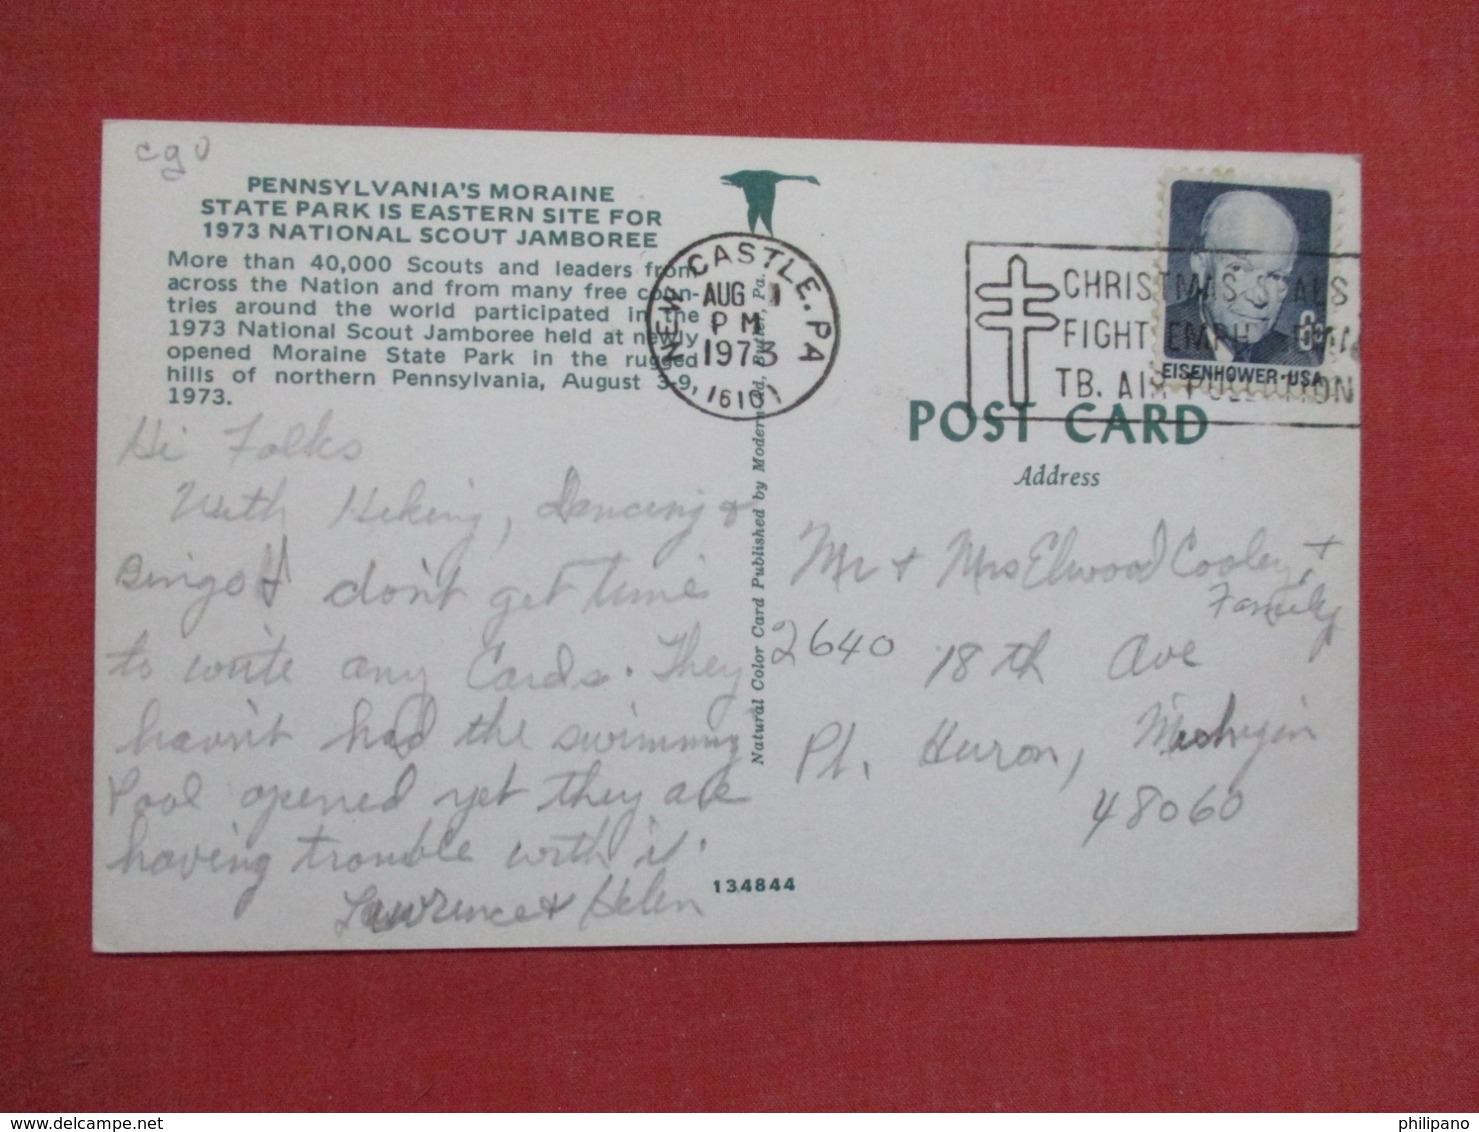 cgv
PENNSYLVANIA'S MORAINE
STATE PARK IS EASTERN SITE FOR
1973 NATIONAL SCOUT JAMBOREE
More than 40,000 Scouts and leaders from
across the Nation and from many free coun-
tries around the world participated in the
1973 National Scout Jamboree held at newly
opened Moraine State Park in the rugged
hills of northern Pennsylvania, August 3-9,
1973.
Hi Folks
With Hiking, Dancing &
Bingo I don't get time
to write any Cards. They
haven't had the swimming
Pool opened yet they are
having trouble with it.
Lawrence & Helen
134844
NEW CASTLE, PA
AUG 1
PM
1973
(610)
Natural Color Card Published by Modern-Ad, Butler, Pa.
CHRISTMAS SEALS
FIGHT EMPHYSEMA
TB. AIR POLLUTION
6c
EISENHOWER·USA
POST CARD
Address
Mr + Mrs Elwood Cooley, +
Family
2640 18th Ave
Pt. Huron, Michigin
48060
philipano